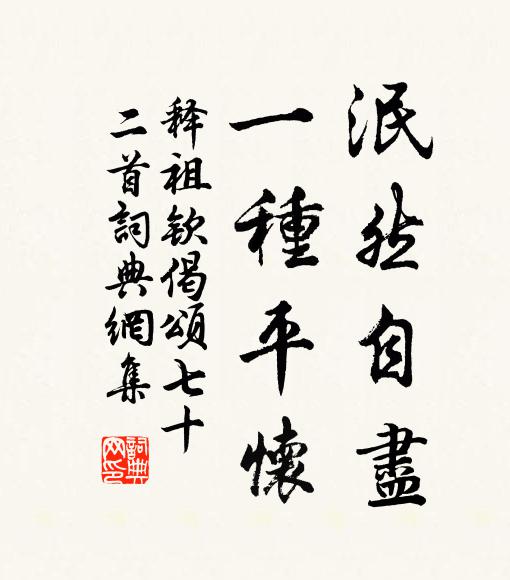 泯然自盡
一種平懷
释祖钦偈頌七十
二首詞典網集
詞典
网印